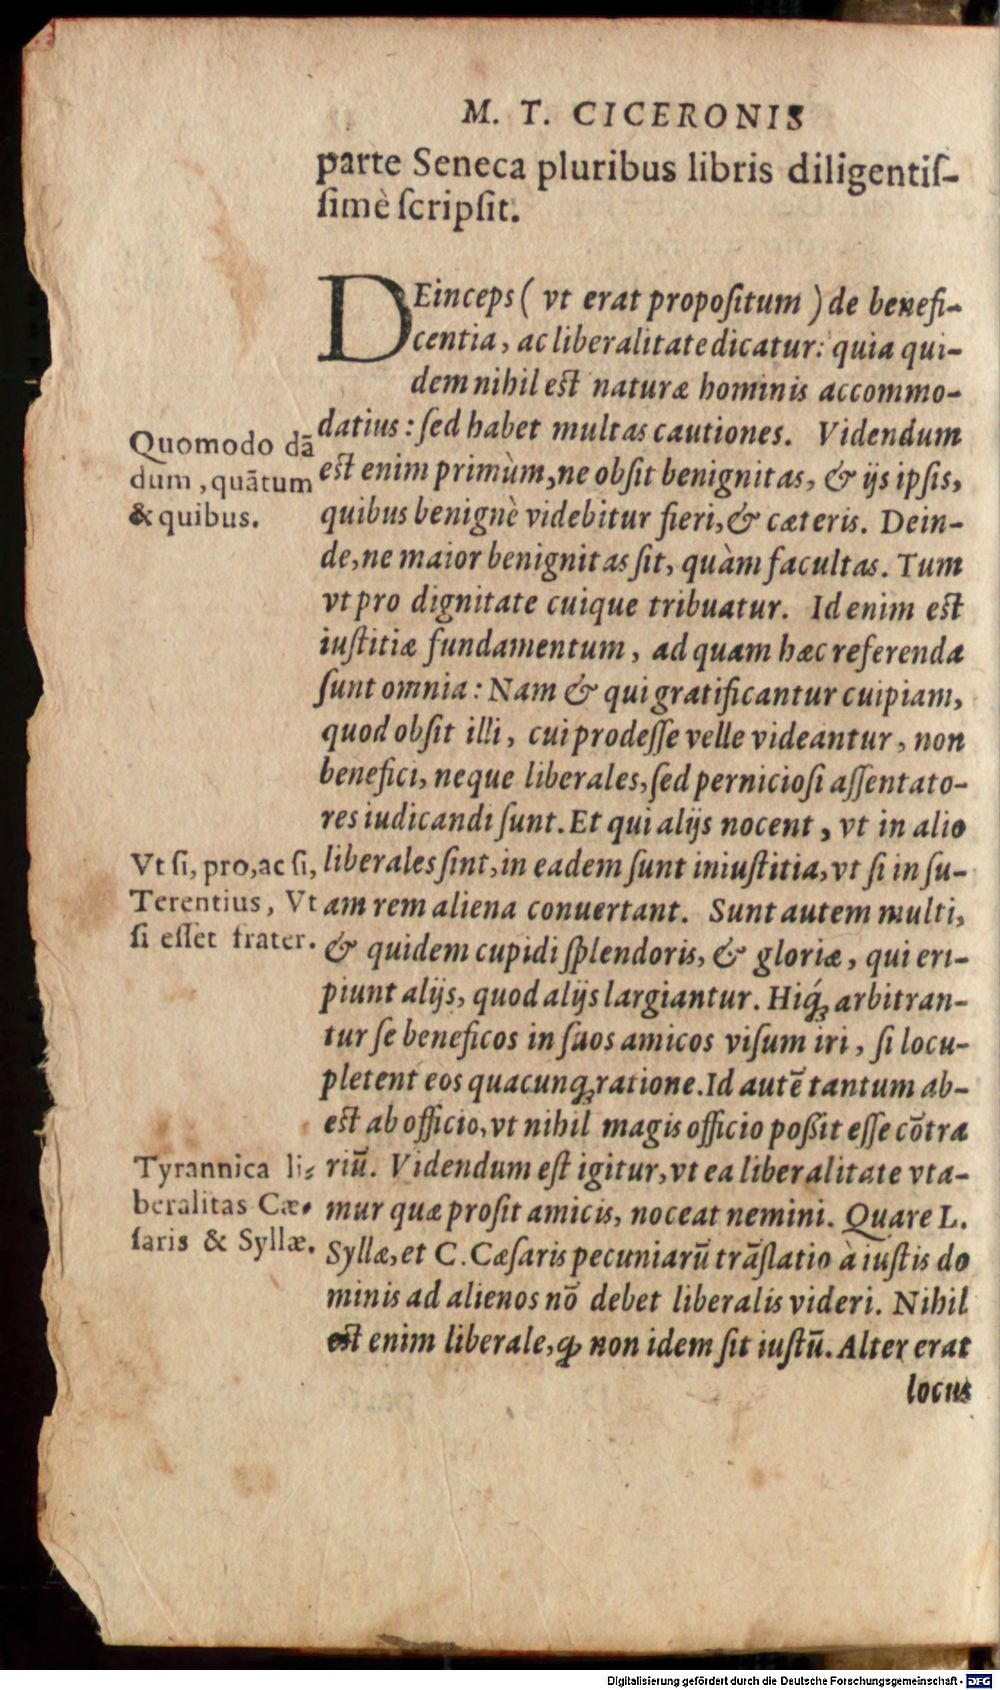 M. T. CICERONIS
parte Seneca pluribus libris diligentiſ-
ſimè ſcripſit.
DEinceps ( vt erat propoſitum ) de benefi-
centia, ac liberalitate dicatur: quia qui-
dem nihil est naturæ hominis accommo-
datius: ſed habet multas cautiones. Videndum
est enim primùm, ne obſit benignitas, & ijs ipſis,
quibus benignè videbitur fieri, & cæteris. Dein-
de, ne maior benignitas ſit, quàm facultas. Tum
vt pro dignitate cuique tribuatur. Id enim est
iuſtitiæ fundamentum, ad quam hæc referenda
ſunt omnia: Nam & qui gratificantur cuipiam,
quod obſit illi, cui prodeſſe velle videantur, non
benefici, neque liberales, ſed pernicioſi aſſentato-
res iudicandi ſunt. Et qui alijs nocent, vt in alio
liberales ſint, in eadem ſunt iniuſtitia, vt ſi in ſu-
am rem aliena conuertant. Sunt autem multi,
& quidem cupidi ſplendoris, & gloriæ, qui eri-
piunt alijs, quod alijs largiantur. Hiq́; arbitran-
tur ſe beneficos in ſuos amicos viſum iri, ſi locu-
pletent eos quacunq; ratione. Id autē tantum ab-
est ab officio, vt nihil magis officio poßit eſſe cōtra
riū. Videndum eſt igitur, vt ea liberalitate vta-
mur quæ proſit amicis, noceat nemini. Quare L.
Syllæ, et C. Cæſaris pecuniarū trāſlatio à iuſtis do
minis ad alienos nō debet liberalis videri. Nihil
est enim liberale, ꝙ non idem ſit iuſtū. Alter erat
locus
Quomodo dā
dum, quātum
& quibus.
Vt ſi, pro, ac ſi,
Terentius, Vt
ſi eſſet frater.
Tyrannica li-
beralitas Cæ-
ſaris & Syllæ.
Digitalisierung gefördert durch die Deutsche Forschungsgemeinschaft - DFG